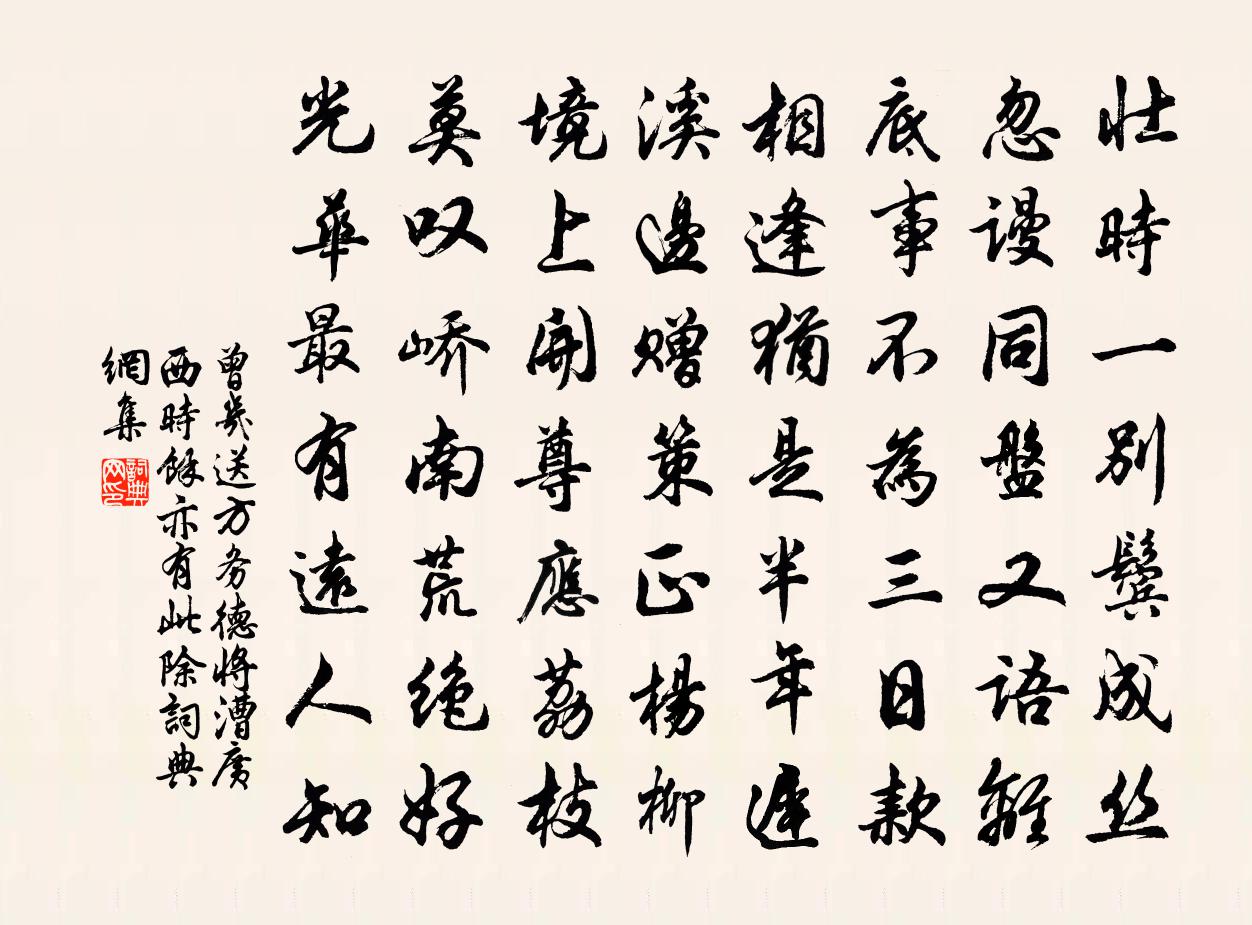 壯時一別鬢成丝
忽謾同盤又語離
底事不為三日款
相逢猶是半年遲
溪邊赠策正楊柳
境上開尊應荔枝
莫叹峤南荒绝好
光華最有遠人知
曾幾送方务德将漕廣
西時餘亦有此除詞典
網集
詞典网印